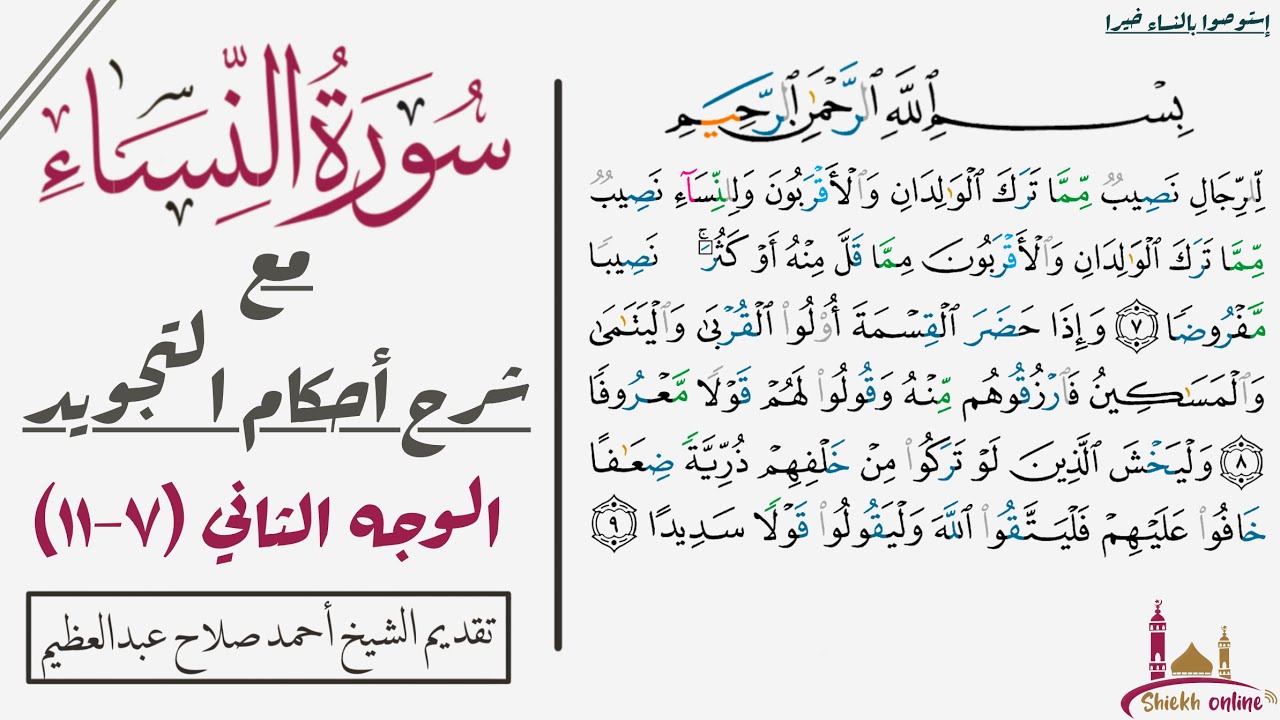 إستوصوا بالنساء خيرا
سُورَةُ النِّسَاءِ
مع
شرح أحكام التجويد
الوجه الثاني (٧-١١)
تقديم الشيخ أحمد صلاح عبدالعظيم
بِسْمِ ٱللَّهِ ٱلرَّحْمَٰنِ ٱلرَّحِيمِ
لِّلرِّجَالِ نَصِيبٌ مِّمَّا تَرَكَ ٱلْوَٰلِدَانِ وَٱلْأَقْرَبُونَ وَلِلنِّسَآءِ نَصِيبٌ
مِّمَّا تَرَكَ ٱلْوَٰلِدَانِ وَٱلْأَقْرَبُونَ مِمَّا قَلَّ مِنْهُ أَوْ كَثُرَ ۚ نَصِيبًا
مَّفْرُوضًا ٧ وَإِذَا حَضَرَ ٱلْقِسْمَةَ أُو۟لُوا۟ ٱلْقُرْبَىٰ وَٱلْيَتَٰمَىٰ
وَٱلْمَسَٰكِينُ فَٱرْزُقُوهُم مِّنْهُ وَقُولُوا۟ لَهُمْ قَوْلًا مَّعْرُوفًا
٨ وَلْيَخْشَ ٱلَّذِينَ لَوْ تَرَكُوا۟ مِنْ خَلْفِهِمْ ذُرِّيَّةً ضِعَٰفًا
خَافُوا۟ عَلَيْهِمْ فَلْيَتَّقُوا۟ ٱللَّهَ وَلْيَقُولُوا۟ قَوْلًا سَدِيدًا ٩
Shiekh online